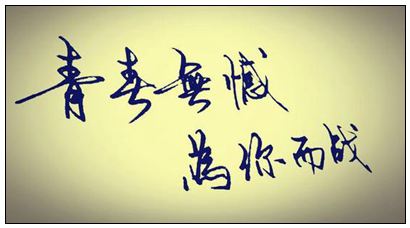 青春無憾
為你而战